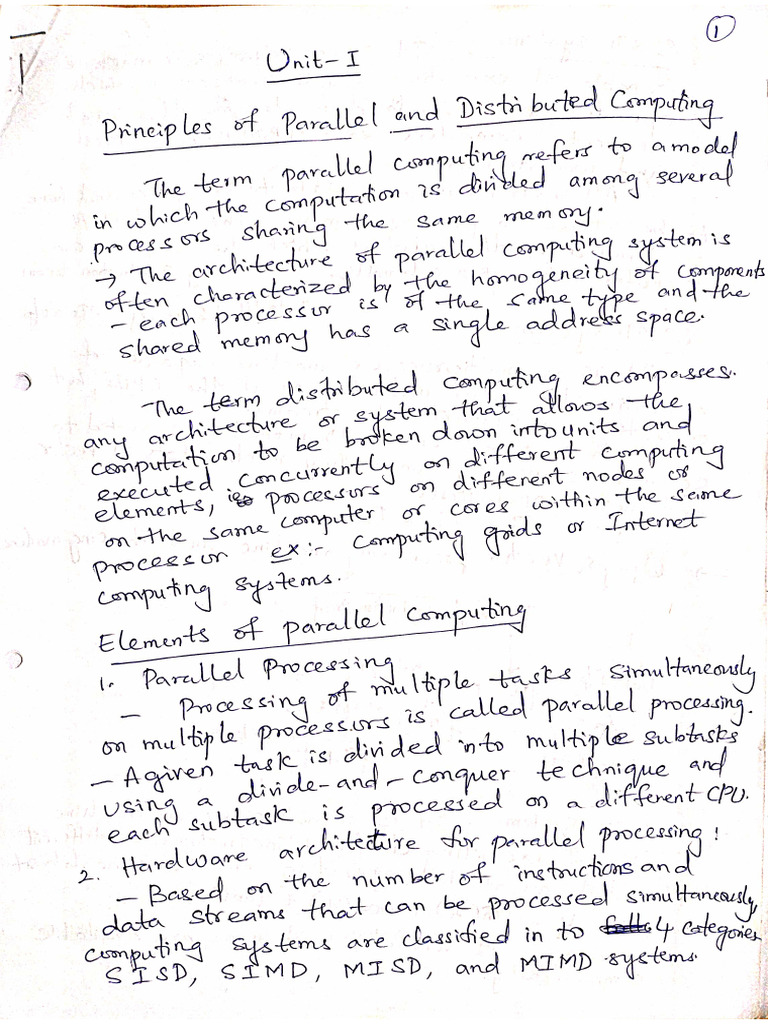 1
Unit-I
Principles of Parallel and Distributed Computing
The term parallel computing refers to a model
in which the computation is divided among several
processors sharing the same memory.
→ The architecture of parallel computing system is
often characterized by the homogeneity of components
- each processor is of the same type and the
shared memory has a single address space.
The term distributed computing encompasses.
any architecture or system that allows the
computation to be broken down into units and
executed concurrently on different computing
elements, processors on different nodes or
on the same computer or cores within the same
processor ex:- Computing grids or Internet
computing systems.
Elements of parallel Computing
1. Parallel Processing
- Processing of multiple tasks simultaneously
on multiple processors is called parallel processing.
- A given task is divided into multiple subtasks
using a divide-and-conquer technique and
each subtask is processed on a different CPU.
2. Hardware architecture for parallel processing:
- Based on the number of instructions and
data streams that can be processed simultaneously
computing systems are classified in to 4 categories
SISD, SIMD, MISD, and MIMD systems.